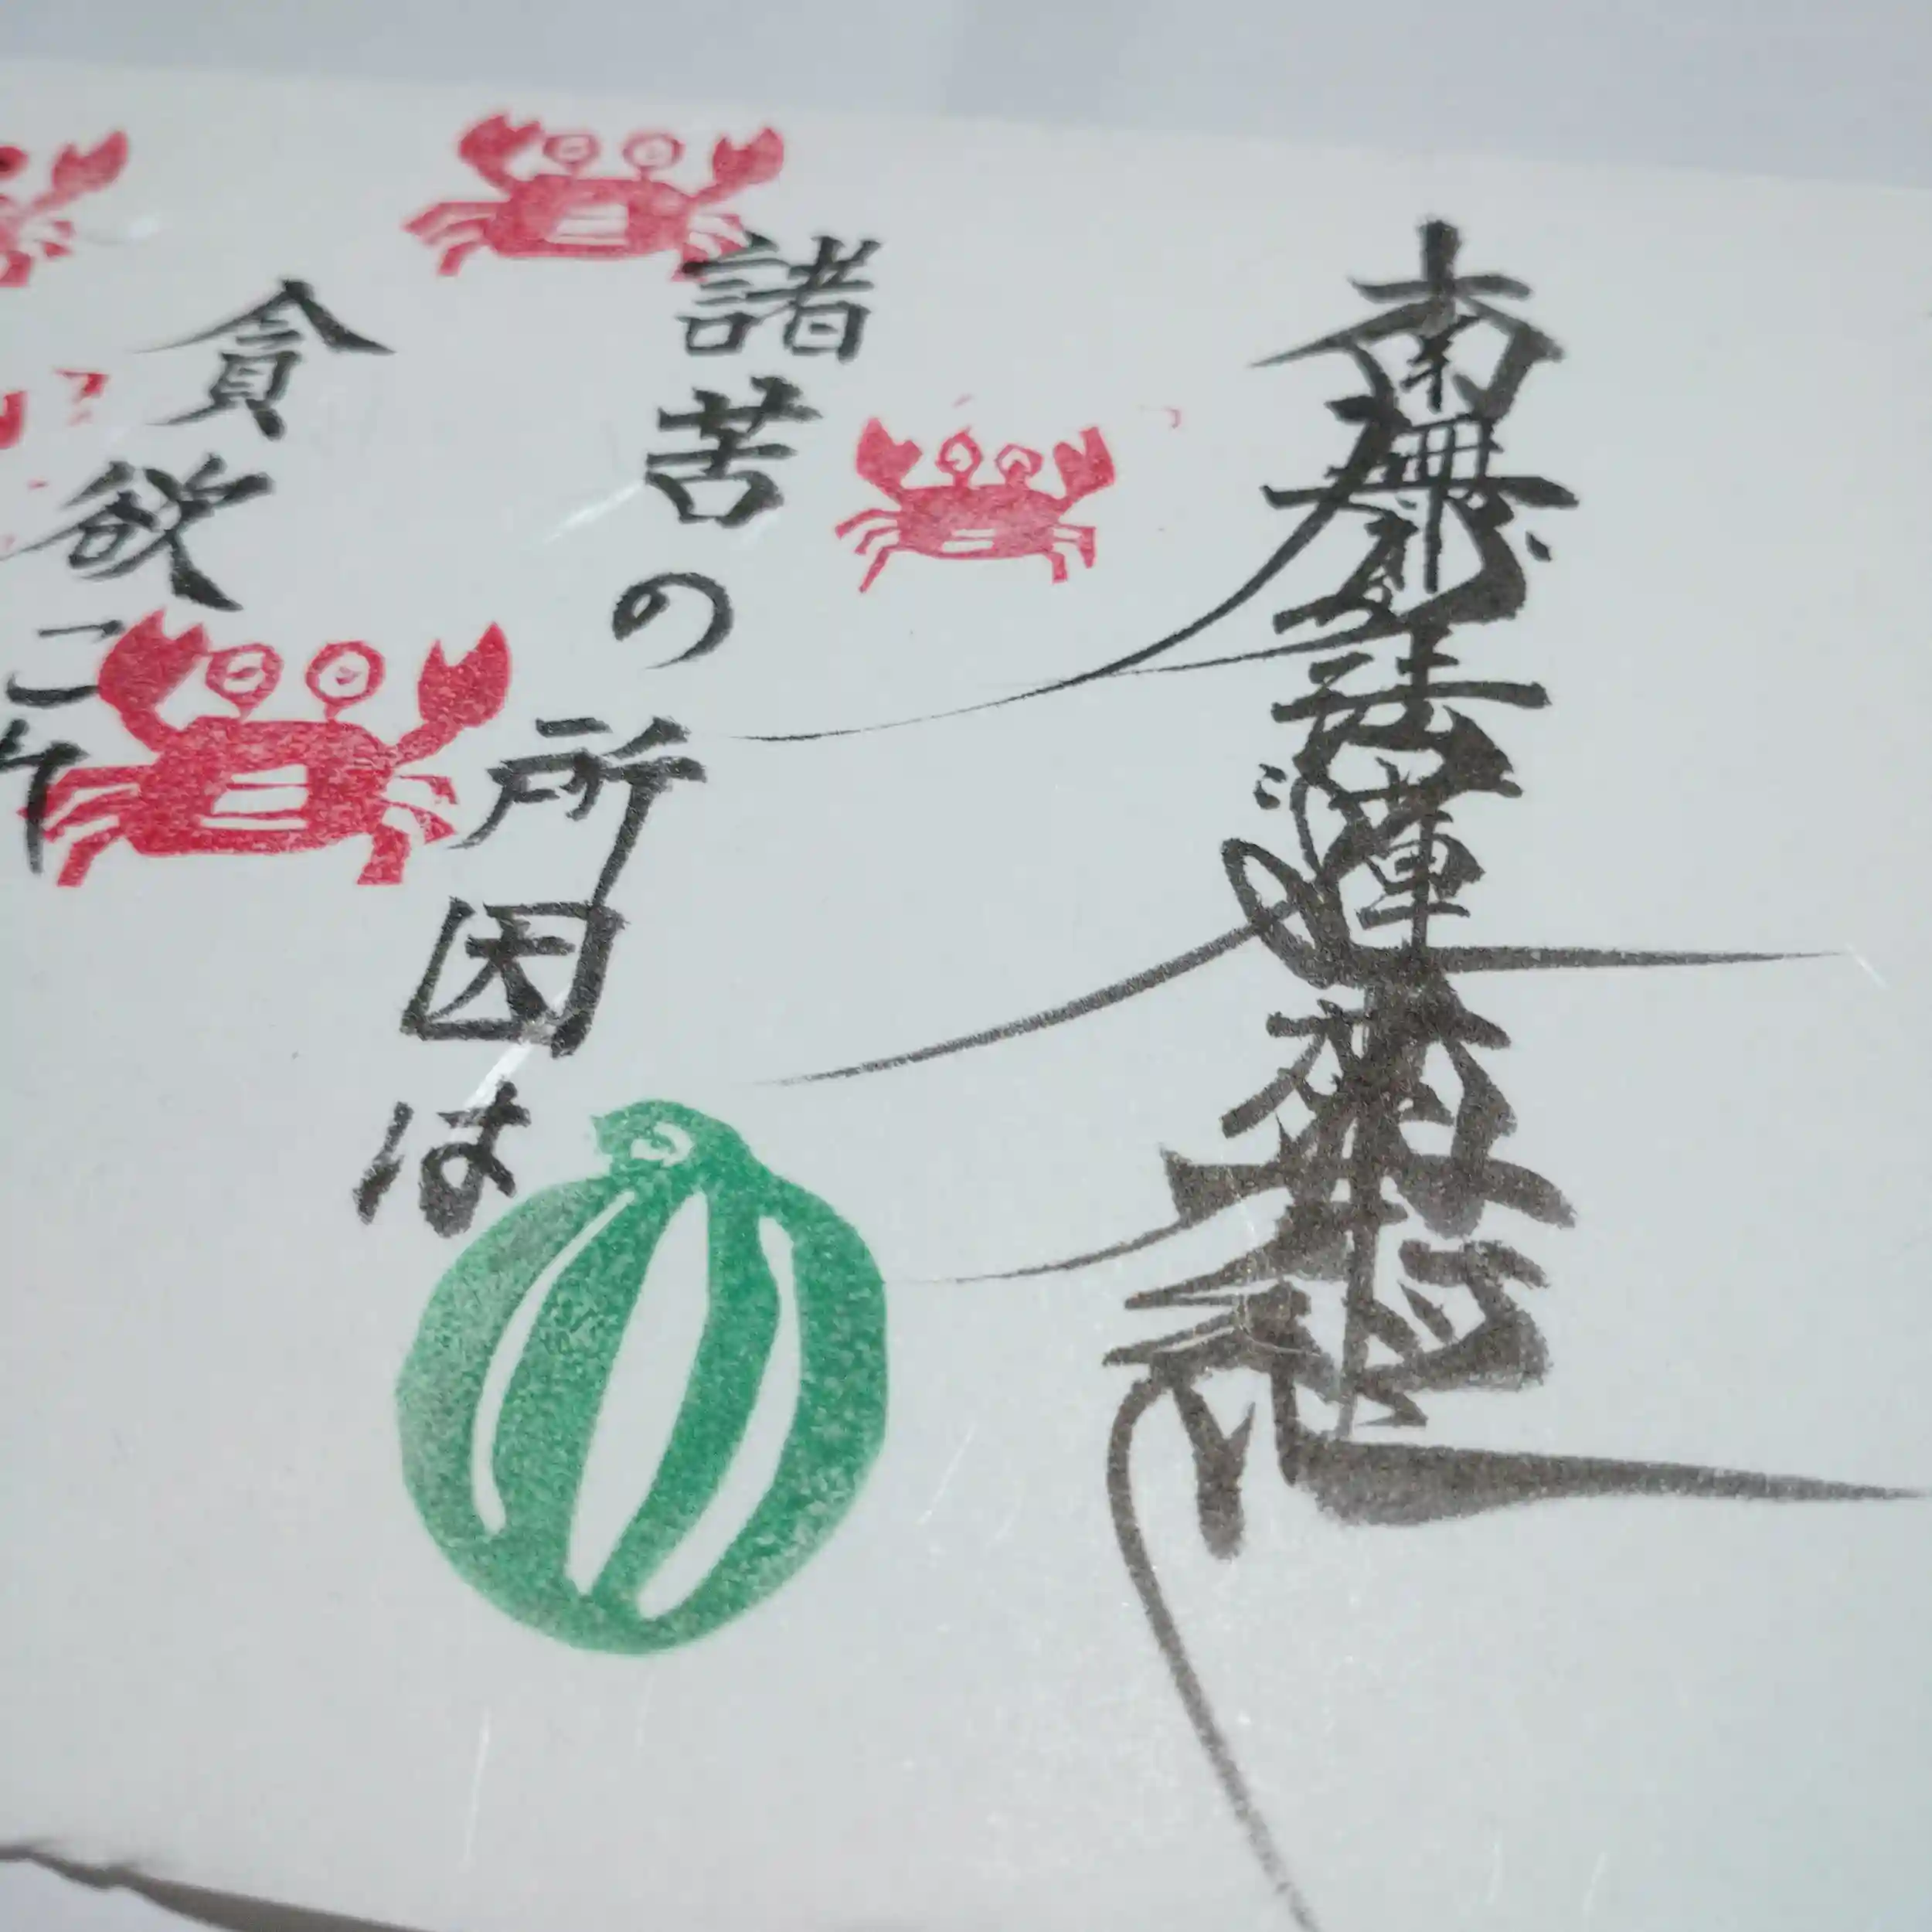 南無妙法蓮華経
諸苦の所因は
貪欲こ